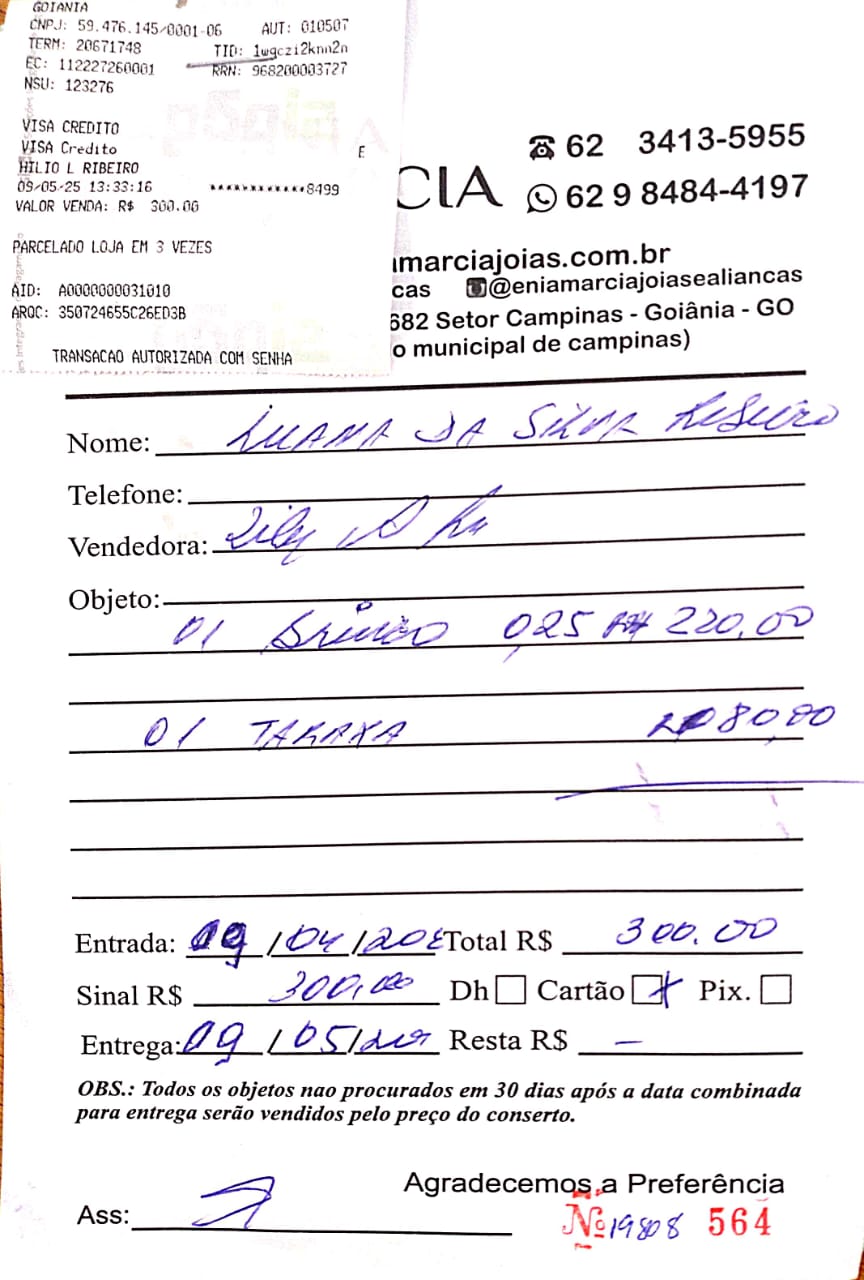 GOIANIA
CNPJ: 59.476.145/0001-06 AUT: 010507
TERM: 20671748 TID: 1wgczi2knn2n
EC: 112227260001 RRN: 968200003727
NSU: 123276
VISA CREDITO
VISA Crédito E
HILIO L RIBEIRO
09/05/25 13:33:16 ************8499
VALOR VENDA: R$ 300.00
PARCELADO LOJA EM 3 VEZES
AID: A0000000031010
ARQC: 350724655C26ED3B
TRANSACAO AUTORIZADA COM SENHA
CIA
62 3413-5955
62 9 8484-4197
marciajoias.com.br
cas @eniamarciajoiasealiancas
682 Setor Campinas - Goiânia - GO
o municipal de campinas)
Nome: LUANA DA SILVA RIBEIRO
Telefone:
Vendedora:
Objeto:
01 Brinco 0,25 220,00
01 TARAXA 80,00
Entrada: 09/04/202 Total R$ 300.00
Sinal R$ 300,00 Dh Cartão x Pix.
Entrega: 09/05/ Resta R$ —
OBS.: Todos os objetos nao procurados em 30 dias após a data combinada
para entrega serão vendidos pelo preço do conserto.
Agradecemos a Preferência
Ass:
Nº 19808 564